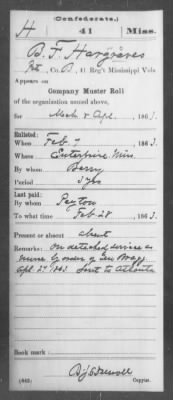 (Confederate.)
H 41 Miss.
B. F. Hargraves
Pvt, Co. B, 41 Reg't Mississippi Vols
Appears on
Company Muster Roll
of the organization named above,
for Mch & Apl, 1863.
Enlisted:
When Feb 7, 1863.
Where Enterprise, Miss.
By whom Berry
Period 3 yrs
Last paid:
By whom Peyton
To what time Feb 28, 1863.
Present or absent absent
Remarks: On detached service as
nurse by order of Gen Bragg
Apl 27 1863. Sent to Atlanta
Book mark:
(642) Copyist.